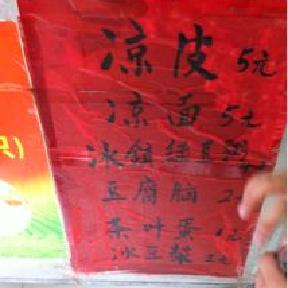 凉皮 5元
凉面 5元
冰镇绿豆
豆腐脑 2元
茶叶蛋 1元
冰豆浆 2元